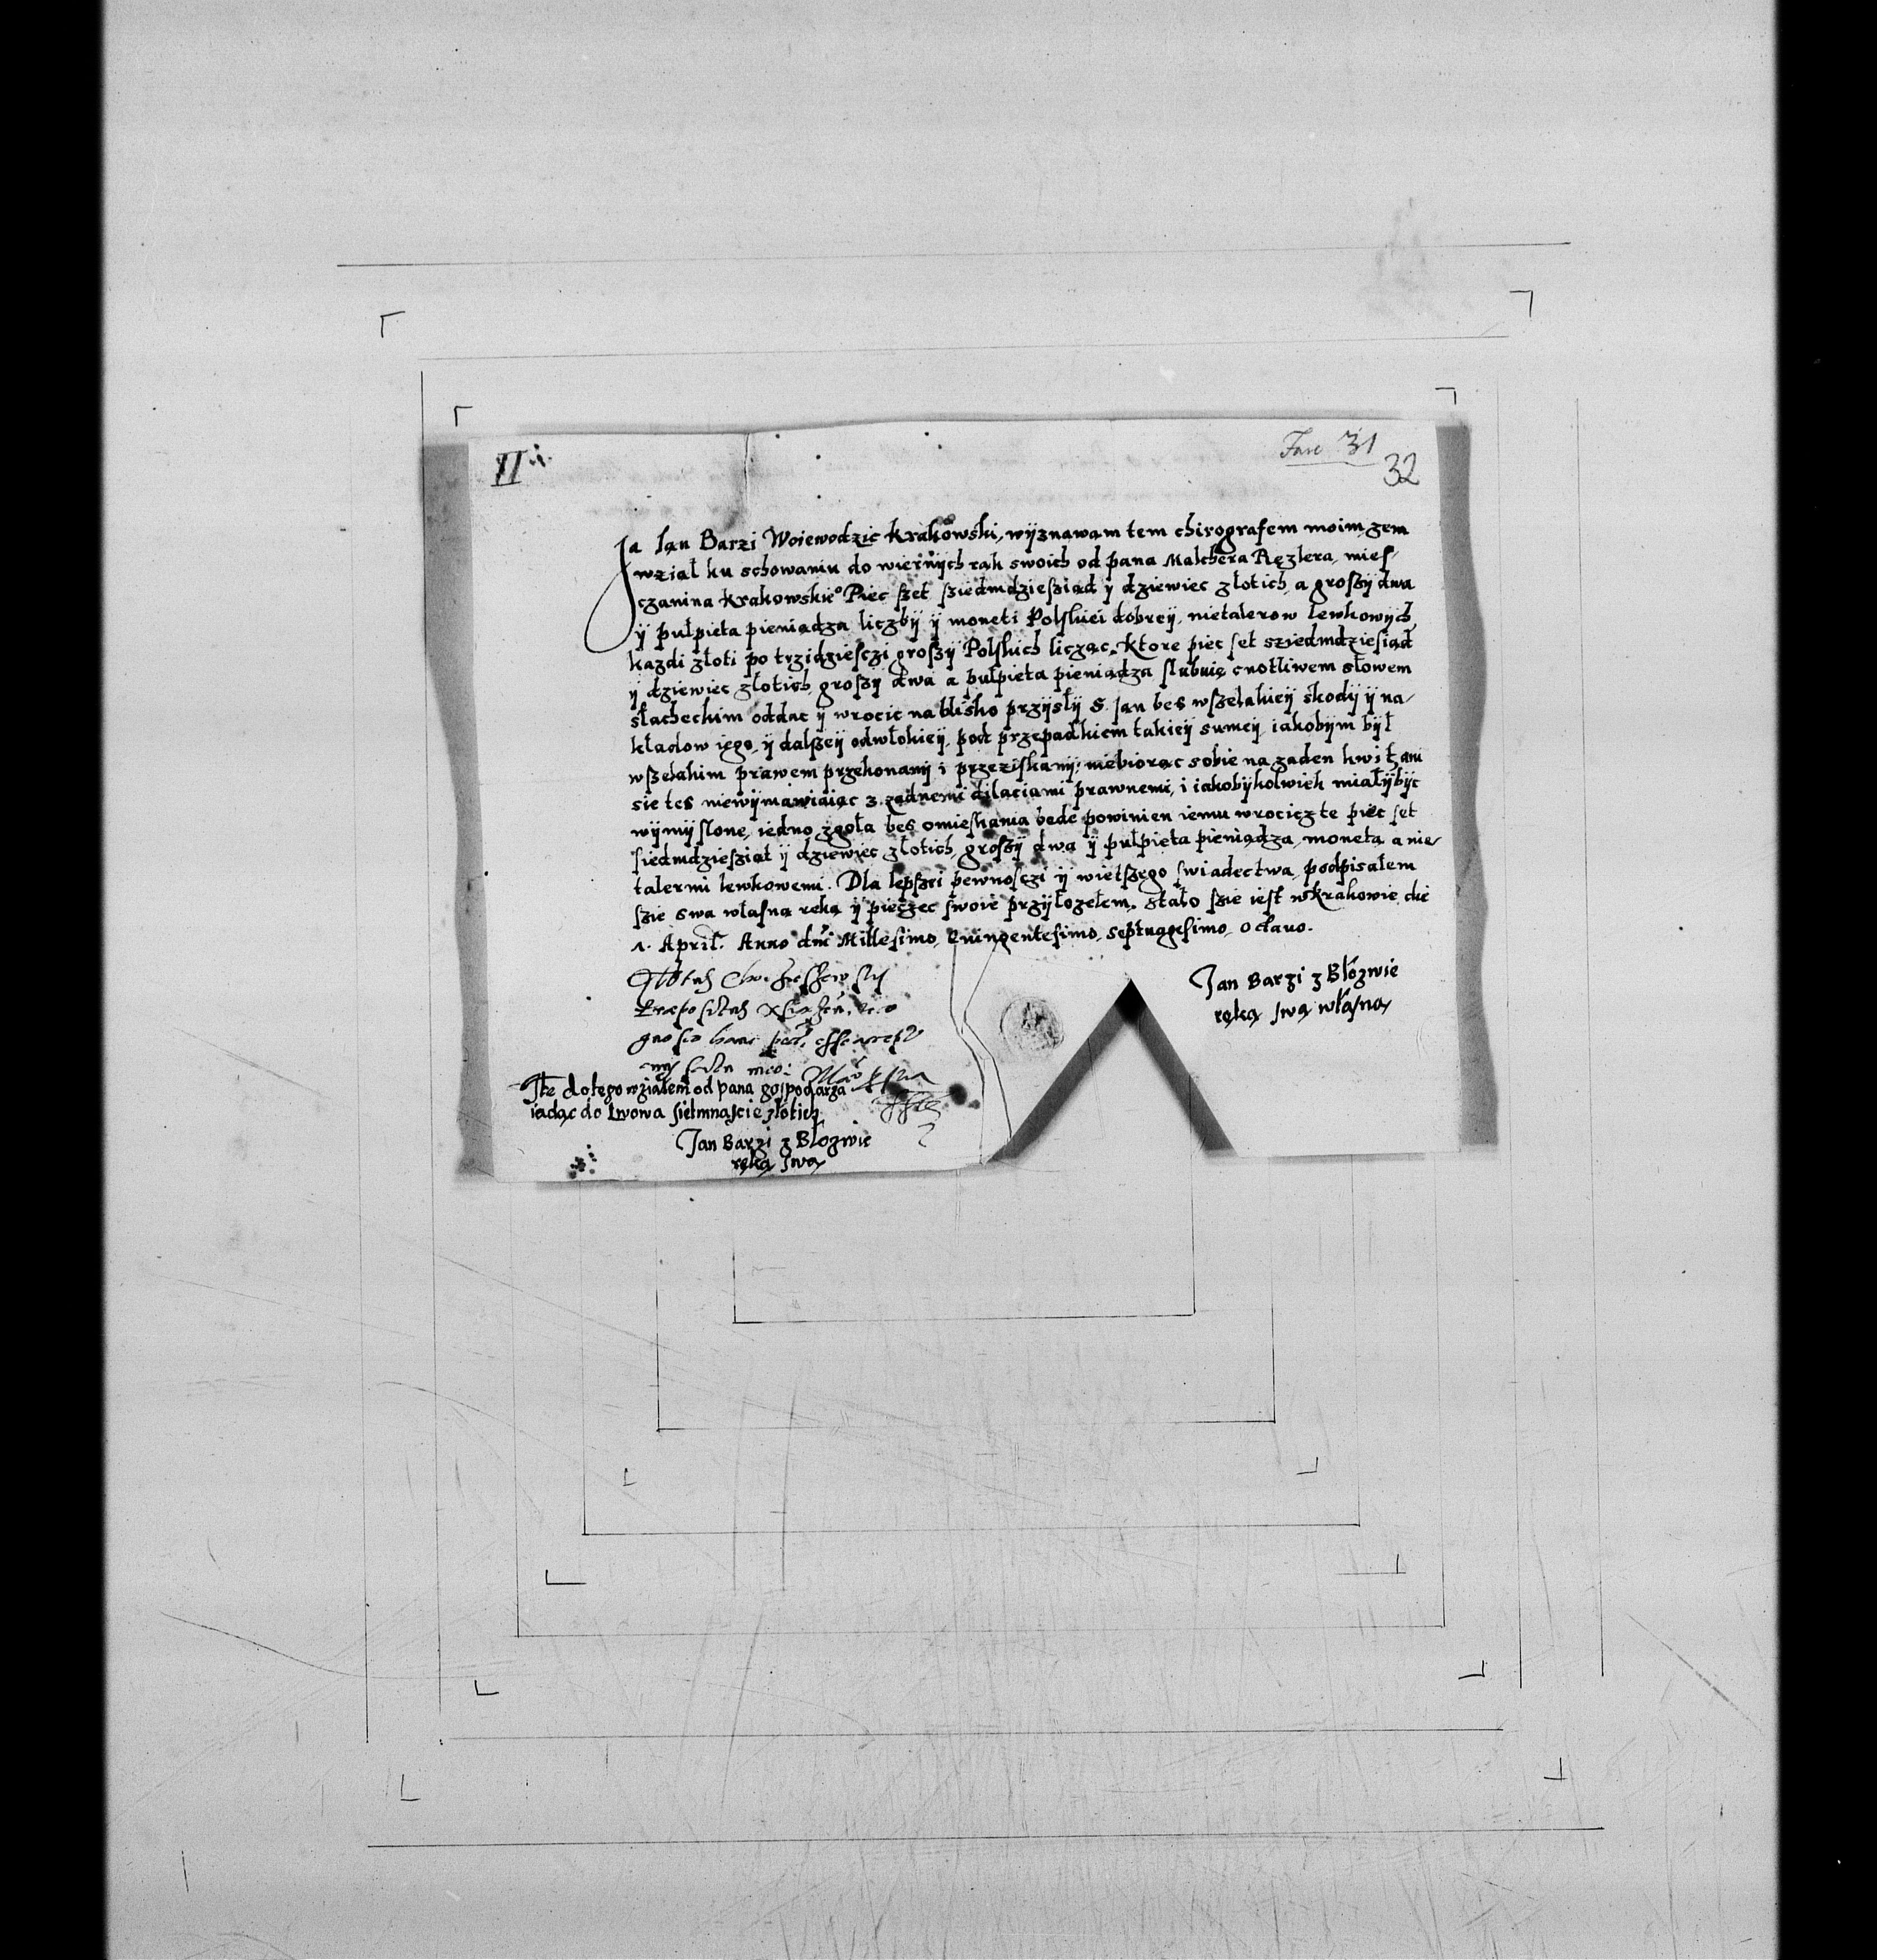 II
Fasc 31
32
Ja Jan Barzi Woiewodzic Krakowski, wyznawam tem chirografem moim, zem
wział ku schowaniu do wiernÿch rąk swoich od pana Malchera Ręzlera, mies-
czanina Krakowskie° Piec szet sziedmdziesziąd ÿ dziewiec złotich, a groszÿ dwa
ÿ pułpięta pieniądza liczbÿ ÿ moneti Polskiei dobreÿ, nietalerow lewkowÿch,
kazdi złoti po trzidziesczi groszÿ Polskich licząc. Ktore piec set sziedmdziesiąd
ÿ dziewiec złotich, groszÿ dwa a pułpięta pieniądza slubuię cnotliwem słowem
slacheckim oddac ÿ wrocic na blisko przÿsłÿ S. Jan bes wszelakieÿ skodÿ ÿ na-
kładow iego, ÿ dalszeÿ odwłokieÿ, pod przepadkiem takieÿ sumeÿ, iakobÿm bÿł
wszelakim prawem przekonanÿ i przeziskanÿ, niebiorąc sobie na zaden kwit, ani
sie tes niewÿmawiaiąc z zadnemi dilaciami prawnemi, i iakobÿkolwiek miałÿ bÿc
wÿmÿslone, iedno zgoła bes omieskania bede powinien iemu wrocicz te piec set
siedmdziesziąt ÿ dziewiec złotich, groszÿ dwa ÿ pułpięta pieniądza, monetą a nie-
talermi lewkowemi. Dla lepszei pewnosczi ÿ wietszego swiadectwa, podpisałem
szie swą własną ręką ÿ pieczec swoie przÿłozełem. Stało szie iest w Krakowie die
1. April. Anno dni Millesimo, Quingentesimo, Septuagesimo, octavo.
Jan Barzi z Błozwie
ręką swą własną
Jte do tego wziałem od pana gospodarza
iadąc do Lwowa siétmnascie złotich
Jan Barzi z Błozwie
ręką swą